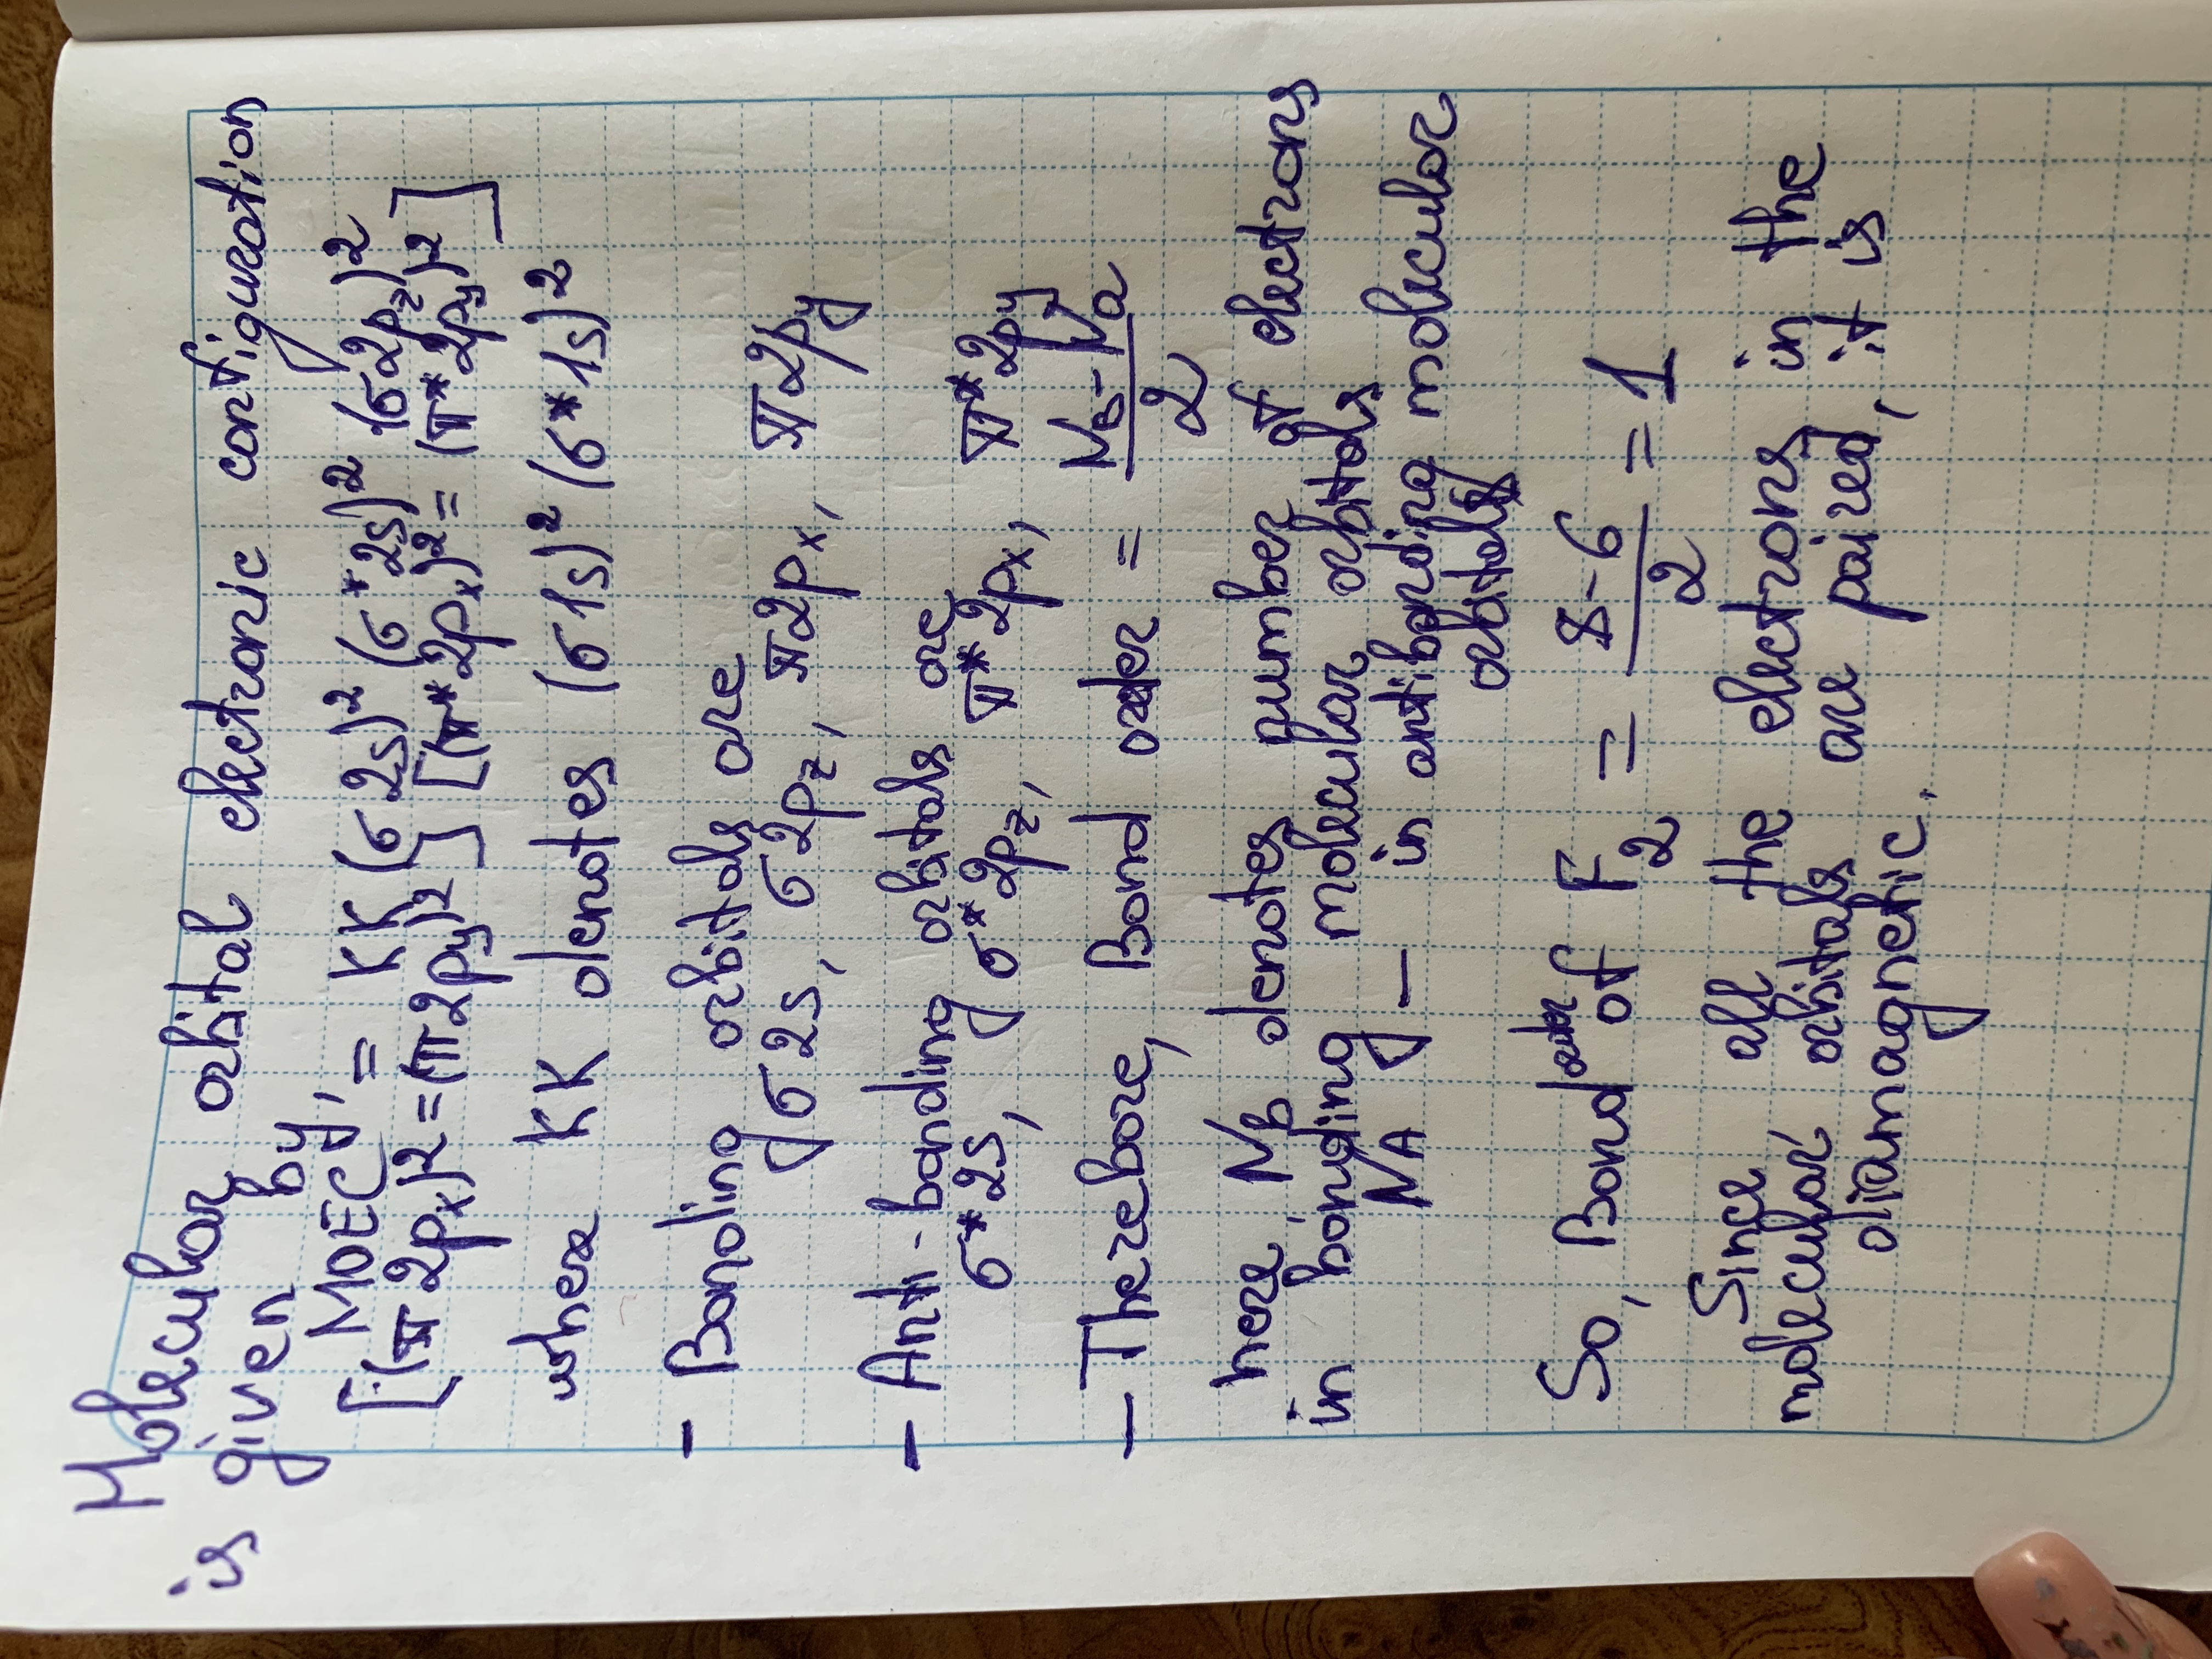 Molecular orbital electronic configuration
is given by,
MOEC = KK(σ2s)² (σ*2s)² (σ2pz)²
[(π2px)2=(π2py)²] [(π*2px)²=(π*2py)²]
where KK denotes (σ1s)² (σ*1s)²
- Bonding orbitals are
σ2s, σ2pz, π2px, π2py
- Anti-bonding orbitals are
σ*2s, σ*2pz, π*2px, π*2py
- Therebore, Bond order = (NB-Na)/2
here NB denotes number of electrons
in bonding molecular orbitals
NA — in antibonding molecular
orbitals
So, Bond order of F2 = (8-6)/2 = 1
Since all the electrons in the
molecular orbitals are paired, it is
diamagnetic.